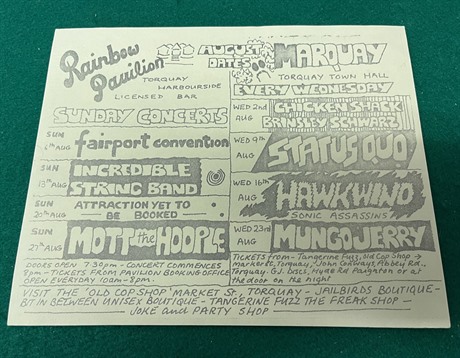 Rainbow Pavilion
TORQUAY HARBOURSIDE
LICENSED BAR
AUGUST DATES
MARQUAY
TORQUAY TOWN HALL
EVERY WEDNESDAY
SUNDAY CONCERTS
SUN 6th AUG fairport convention
SUN 13th AUG INCREDIBLE STRING BAND
SUN 20th AUG ATTRACTION YET TO BE BOOKED
SUN 27th AUG MOTT the HOOPLE
WED 2nd AUG CHICKEN SHACK
BRINSLEY SCHWARZ
WED 9th AUG STATUS QUO
WED 16th AUG HAWKWIND
SONIC ASSASSINS
WED 23rd AUG MUNGO JERRY
DOORS OPEN 7.30pm - CONCERT COMMENCES
8pm - TICKETS FROM PAVILION BOOKING OFFICE
OPEN EVERYDAY 10am - 8pm.
TICKETS from - Tangerine Fuzz, Old Cop Shop
market st, Torquay, John Conways, Abbey Rd.,
Torquay. G.J. Discs, Hyde Rd Paignton or at
the door on the night
VISIT THE 'OLD COPSHOP' MARKET St, TORQUAY - JAILBIRDS BOUTIQUE -
BT IN BETWEEN UNISEX BOUTIQUE - TANGERINE FUZZ THE FREAK SHOP -
JOKE and PARTY SHOP